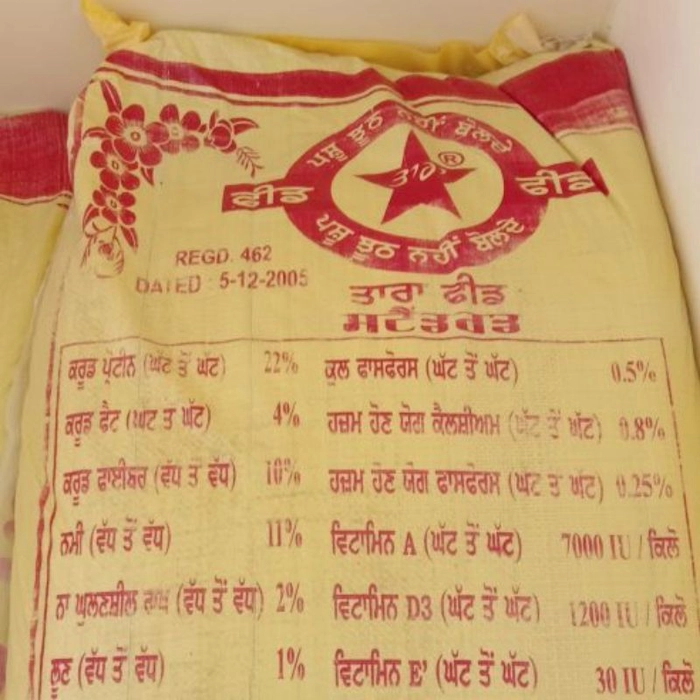 ਪਸ਼ੂ ਝੂਠ ਨਹੀਂ ਬੋਲਦੇ
ਤਾਰਾ ®
ਫੀਡ ਫੀਡ
ਪਸ਼ੂ ਝੂਠ ਨਹੀਂ ਬੋਲਦੇ
REGD. 462
DATED : 5-12-2005
ਤਾਰਾ ਫੀਡ
ਸਟੈਂਡਰਡ
ਕਰੂਡ ਪ੍ਰੋਟੀਨ (ਘੱਟ ਤੋਂ ਘੱਟ) 22% ਕੁਲ ਫਾਸਫੋਰਸ (ਘੱਟ ਤੋਂ ਘੱਟ) 0.5%
ਕਰੂਡ ਫੈਟ (ਘੱਟ ਤੋਂ ਘੱਟ) 4% ਹਜ਼ਮ ਹੋਣ ਯੋਗ ਕੈਲਸ਼ੀਅਮ (ਘੱਟ ਤੋਂ ਘੱਟ) 0.8%
ਕਰੂਡ ਫਾਈਬਰ (ਵੱਧ ਤੋਂ ਵੱਧ) 10% ਹਜ਼ਮ ਹੋਣ ਯੋਗ ਫਾਸਫੋਰਸ (ਘੱਟ ਤੋਂ ਘੱਟ) 0.25%
ਨਮੀ (ਵੱਧ ਤੋਂ ਵੱਧ) 11% ਵਿਟਾਮਿਨ A (ਘੱਟ ਤੋਂ ਘੱਟ) 7000 IU / ਕਿਲੋ
ਨਾ ਘੁਲਣਸ਼ੀਲ ਰਾਖ (ਵੱਧ ਤੋਂ ਵੱਧ) 2% ਵਿਟਾਮਿਨ D3 (ਘੱਟ ਤੋਂ ਘੱਟ) 1200 IU / ਕਿਲੋ
ਲੂਣ (ਵੱਧ ਤੋਂ ਵੱਧ) 1% ਵਿਟਾਮਿਨ E' (ਘੱਟ ਤੋਂ ਘੱਟ) 30 IU / ਕਿਲੋ